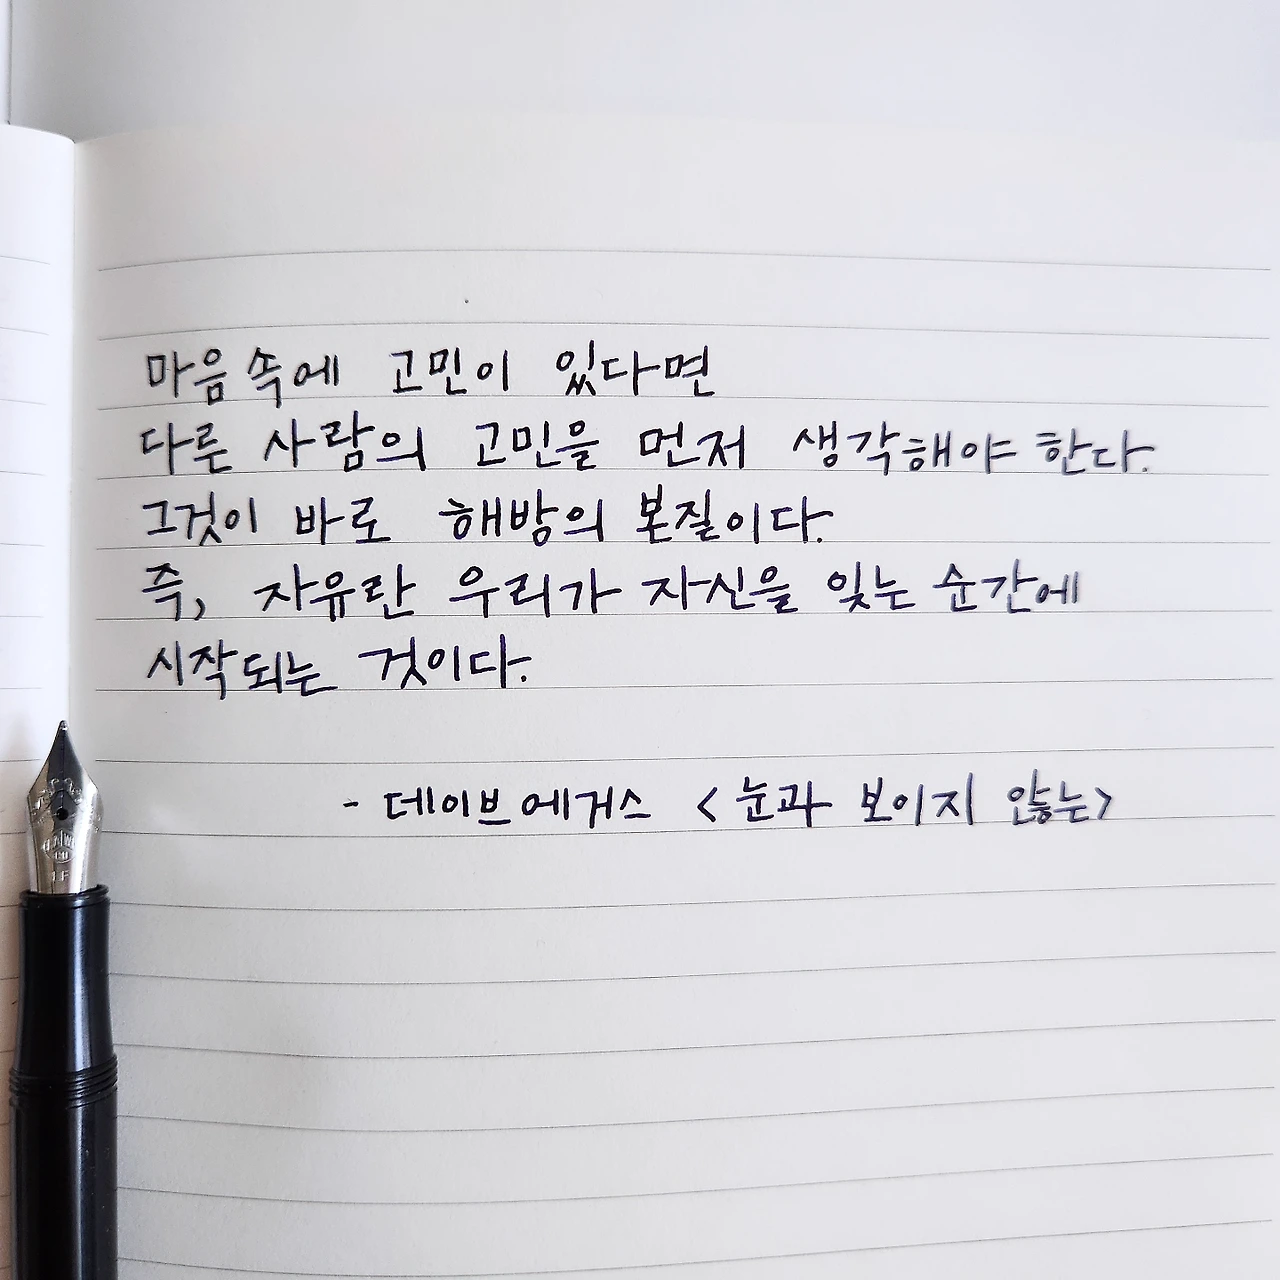 마음속에 고민이 있다면
다른 사람의 고민을 먼저 생각해야 한다.
그것이 바로 해방의 본질이다.
즉, 자유란 우리가 자신을 잊는 순간에
시작되는 것이다.
- 데이브 에거스 <눈과 보이지 않는>